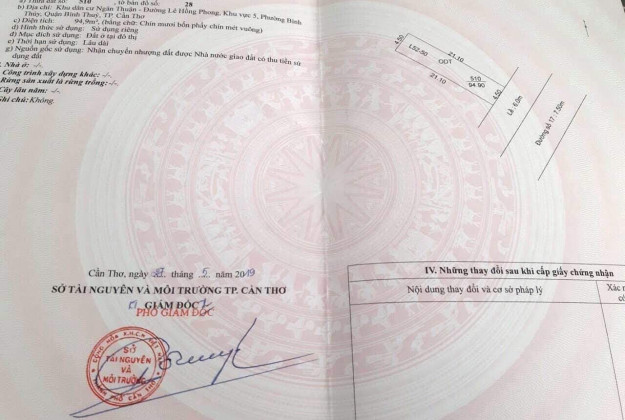 a) Thửa đất số: 510 , tờ bản đồ số: 28
b) Địa chỉ: Khu dân cư Ngân Thuận - Đường Lê Hồng Phong, Khu vực 5, Phường Bình
Thủy, Quận Bình Thuỷ, TP. Cần Thơ
c) Diện tích: 94,9m², (bằng chữ: Chín mươi bốn phẩy chín mét vuông)
d) Hình thức sử dụng: Sử dụng riêng
đ) Mục đích sử dụng: Đất ở tại đô thị
e) Thời hạn sử dụng: Lâu dài
g) Nguồn gốc sử dụng: Nhận chuyển nhượng đất được Nhà nước giao đất có thu tiền sử
dụng đất
Nhà ở: -/-
Công trình xây dựng khác: -/-
Rừng sản xuất là rừng trồng: -/-
Cây lâu năm: -/-
Ghi chú: Không.
4.50
L52-50
21.10
ODT
510
94.90
21.10
4.50
Lề - 6.0m
Đường số 17 - 7.50m
Cần Thơ, ngày tháng 5 năm 2019
SỞ TÀI NGUYÊN VÀ MÔI TRƯỜNG TP. CẦN THƠ
GIÁM ĐỐC
PHÓ GIÁM ĐỐC
SỞ
TÀI NGUYÊN
VÀ
MÔI TRƯỜNG
THÀNH PHỐ CẦN THƠ
IV. Những thay đổi sau khi cấp giấy chứng nhận
Nội dung thay đổi và cơ sở pháp lý
Xác